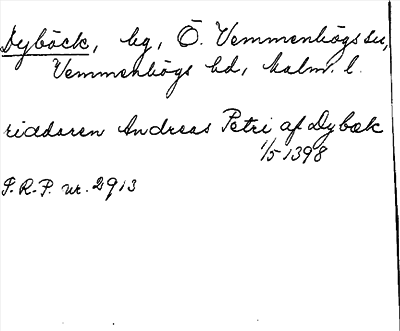 Dybäck, hg, Ö. Vemmenhögs sn,
Vemmenhögs hd, Malm. l.
riddaren Andreas Petri af Dybæk
1/5 1398
S.R.P. nr. 2913